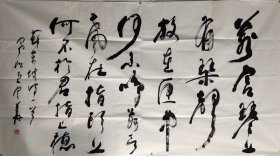 若言琴上
有琴聲
放在匣中
何不鳴若言
聲在指頭上
何不於君指上聽
蘇東坡詩一首